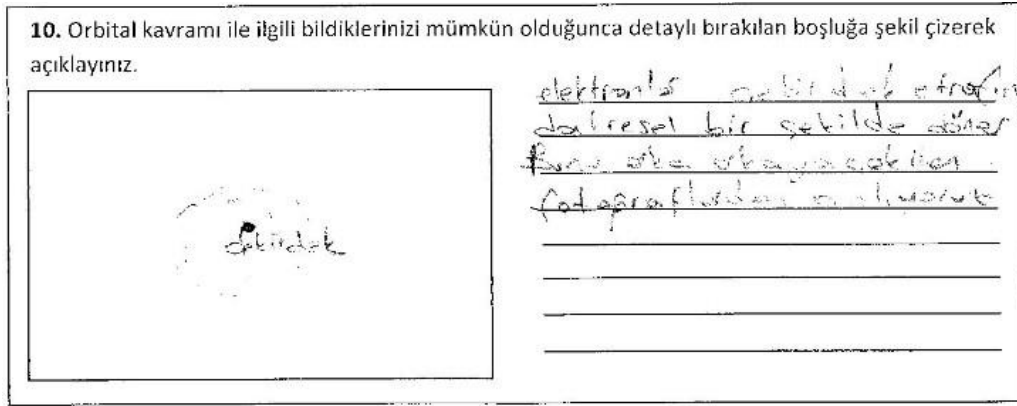 10. Orbital kavramı ile ilgili bildiklerinizi mümkün olduğunca detaylı bırakılan boşluğa şekil çizerek
açıklayınız.
elektronlar çekirdek etrafın
dairesel bir şekilde döner
Bunu arka arkaya çekilen
fotoğraflardan anlıyoruz
çekirdek